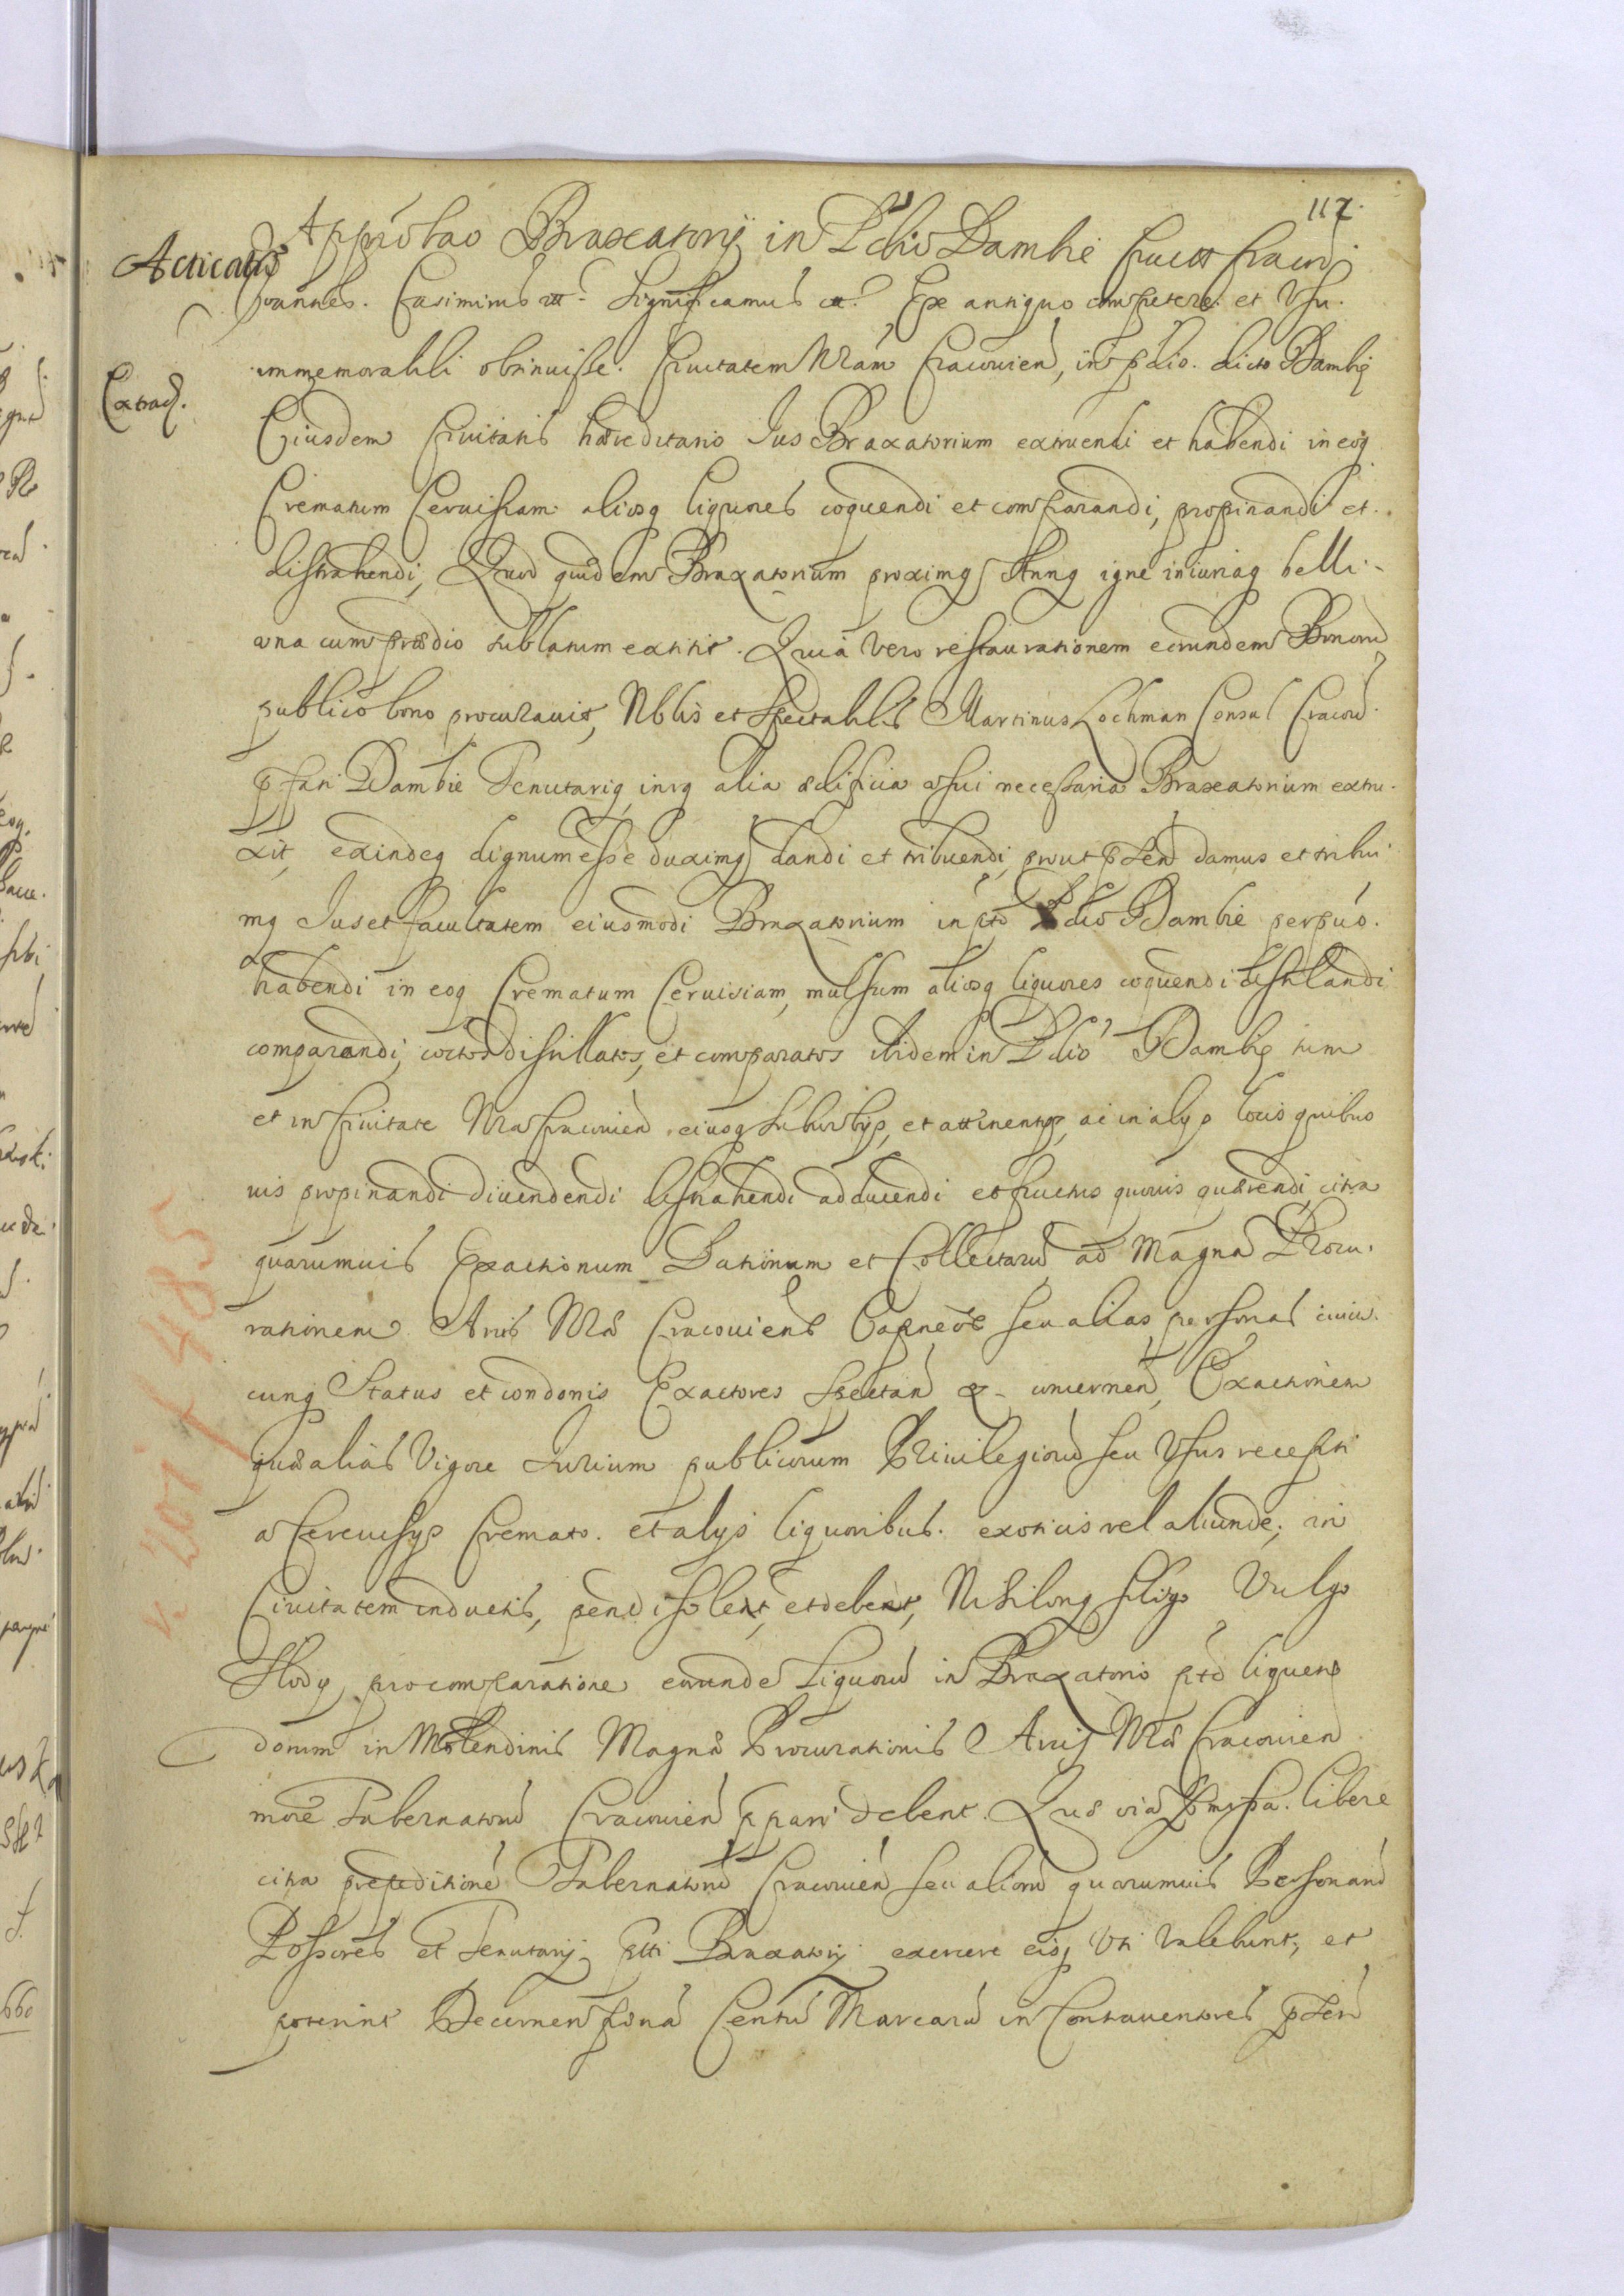 117.
Approbao Braxatorij in Pdio Dambie Ciuitt Cracou
Acticat9
Joannes. Casimirus ett. Significamus ett. Ex antiquo competere et Vsu.
immemorabili obtinuisse. Ciuitatem Nram Cracouien, in pdio. dicto Dambie
Extrad.
Eiusdem Ciuitatis hæreditario Ius Braxatorium extruendi et habendi in eoq
Crematum Ceruisiam aliosq liquores coquendi et comparandi, propinandi et
distrahendi, Quod quidem Braxatorium proximis Annis igne iniuriaq belli
vna cum prædio sublatum extitit. Quia vero restaurationem eorundem Bonoru
publico bono procurauit, Nblis et Spectabilis Martinus Lochman Consul Cracou.
pfati Dambie Tenutariq, intq alia ædificia vsui necessaria Braxatorium extru
xit, exindeq dignum esse duximq dandi et tribuendi, prout pnten damus et tribui
mq Ius et facultatem eiusmodi Braxatorium in pto Pdio Dambie perpuo.
habendi in eoq Crematum Ceruisiam, mulsum aliosq liquores coquendi distilandi
comparandi, coctos distillatos, et comparatos ibidem in Pdio Dambie tum
et in Ciuitate Nra Cracouien eiusq suburbijs, et attinentijs, ac in alijs locis quibus
uis propinandi diuendendi distrahendi adducendi et fructus quouis quærendi, citra
quarumuis Exactionum Dationum et Collectaru ad Magna Procu
rationem Arcis Nræ Cracouiens Capnëos seu alias personas cuius
cunq Status et condonis Exactores spectan & concernen, Exactionem
quæ alias Vigore Iurium publicorum Priuilegioru seu Vsus recepti
a Cereuisijs Cremato. et alijs liquoribus. exoticis vel aliunde, in
Ciuitatem inductis, pendi solent, et debent, Nihilonq siligo Vulgo
Slody pro comparatione eorunde Liquoru in Braxatorio pto liquen
dorum in Molendinis Magnæ Procurationis Arcis Nræ Cracouien
more Tabernatoru Cracouien ppari debent. Quæ oia Pmissa. libere
citra præpeditione Tabernatoru Cracouien seu alioru quorumuis Personaru
Possores et Tenutarij ptti Braxatorij exercere eisq Vti valebunt, et
poterint Decernen pœna Centu Marcaru in Contrauentores pnten
v. 201 f 485